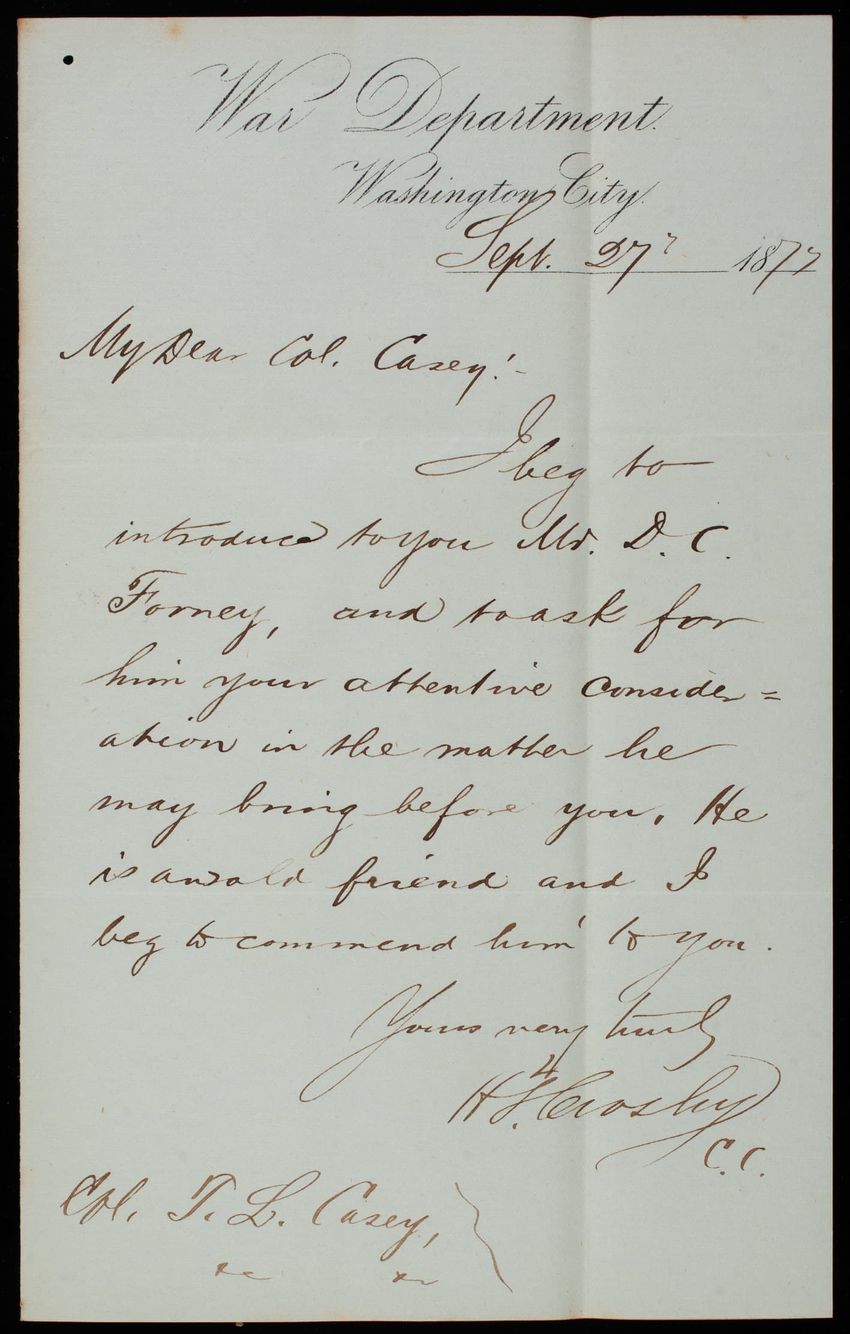 War Department.
Washington City.
Sept. 27 1877
My Dear Col. Casey!-
I beg to
introduce to you Mr. D. C.
Forney, and to ask for
him your attentive consider=
ation in the matter he
may bring before you. He
is an old friend and I
beg to commend him to you.
Yours very truly
Crosby
C.C.
Col. T. L. Casey,